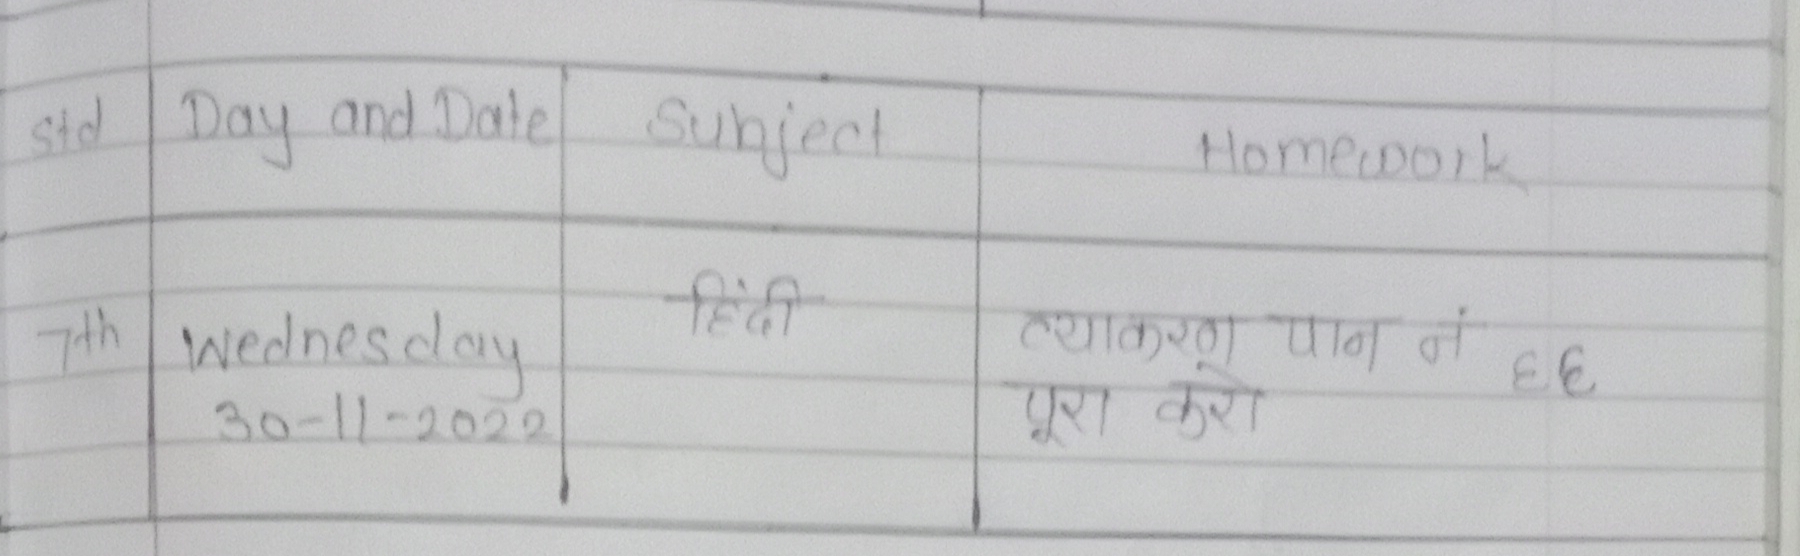 Std Day and Date Subject Homework
7th Wednesday हिंदी व्याकरण पान नं ६६
30-11-2022 पूरा करो